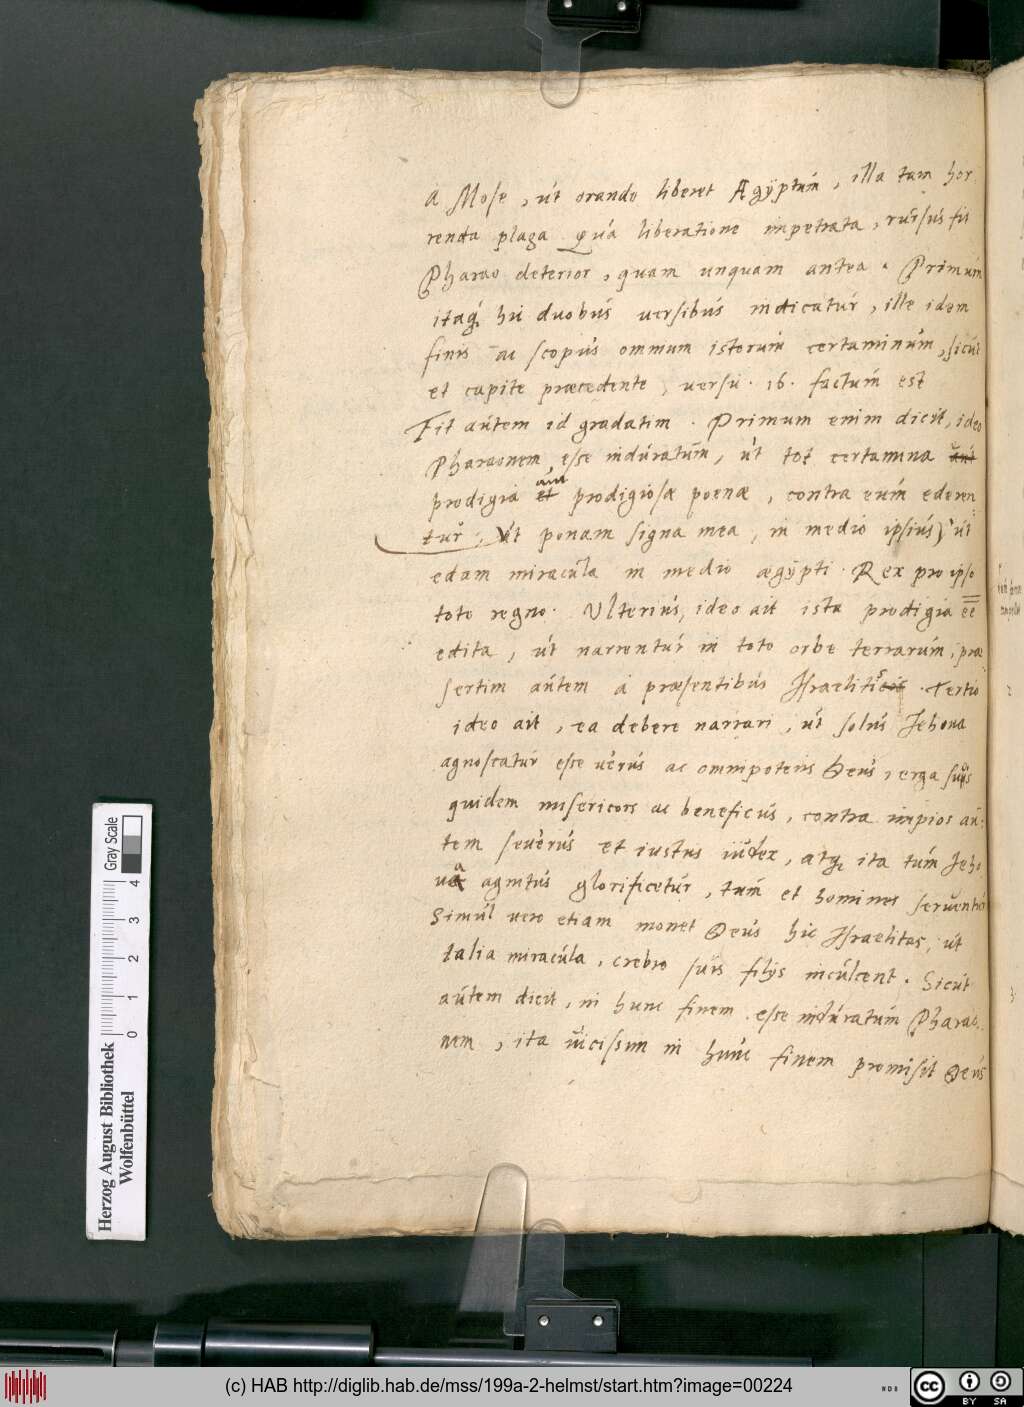 à Mose, út orando liberet Ægÿptúm, illa tam hor
renda plaga qúa liberatione impetrata, rúrsús fit
Pharao deterior, quam unquam antea. Primúm
itaq́ hic duobús versibús indicatúr, ille idem
finis ac scopús omnium istorúm certaminúm, sicút
et capite præcedente, versu. 16. factúm est
Fit aútem id gradatim. Primum enim dicit, ideo
Pharaonem esse indúratúm, út tot certamina
prodigia aut prodigiosæ poenæ, contra eúm ederen
túr, Út ponam signa mea, in medio ipsiús) út
edam miracúla in medio ægÿpti. Rex pro ipso
toto regno. Ulteriús, ideo ait ista prodigia ee
edita, út narrentúr in toto orbe terrarúm, præ
sertim aútem à præsentibús Israelitis. Tertio
ideo ait, ea debere narrari, út solús Jehova
agnoscatúr esse verús ac omnipotens Deús, erga suos
quidem misericors ac beneficús, contra impios aú:
tem severús et iustus iúdex, atq́ ita túm Jeho
va agnitús glorificetúr, túm et homines serventúr
Simúl vero etiam monet Deús hic Israelitas, út
talia miracúla, crebro súis filijs incúlcent. Sicút
aútem dicit, in hunc finem esse indúratúm Pharao.
nem, ita vicissim in húnc finem promisit Deús
Herzog August Bibliothek
Wolfenbüttel
Gray Scale
0 1 2 3 4
(c) HAB http://diglib.hab.de/mss/199a-2-helmst/start.htm?image=00224
cc BY SA